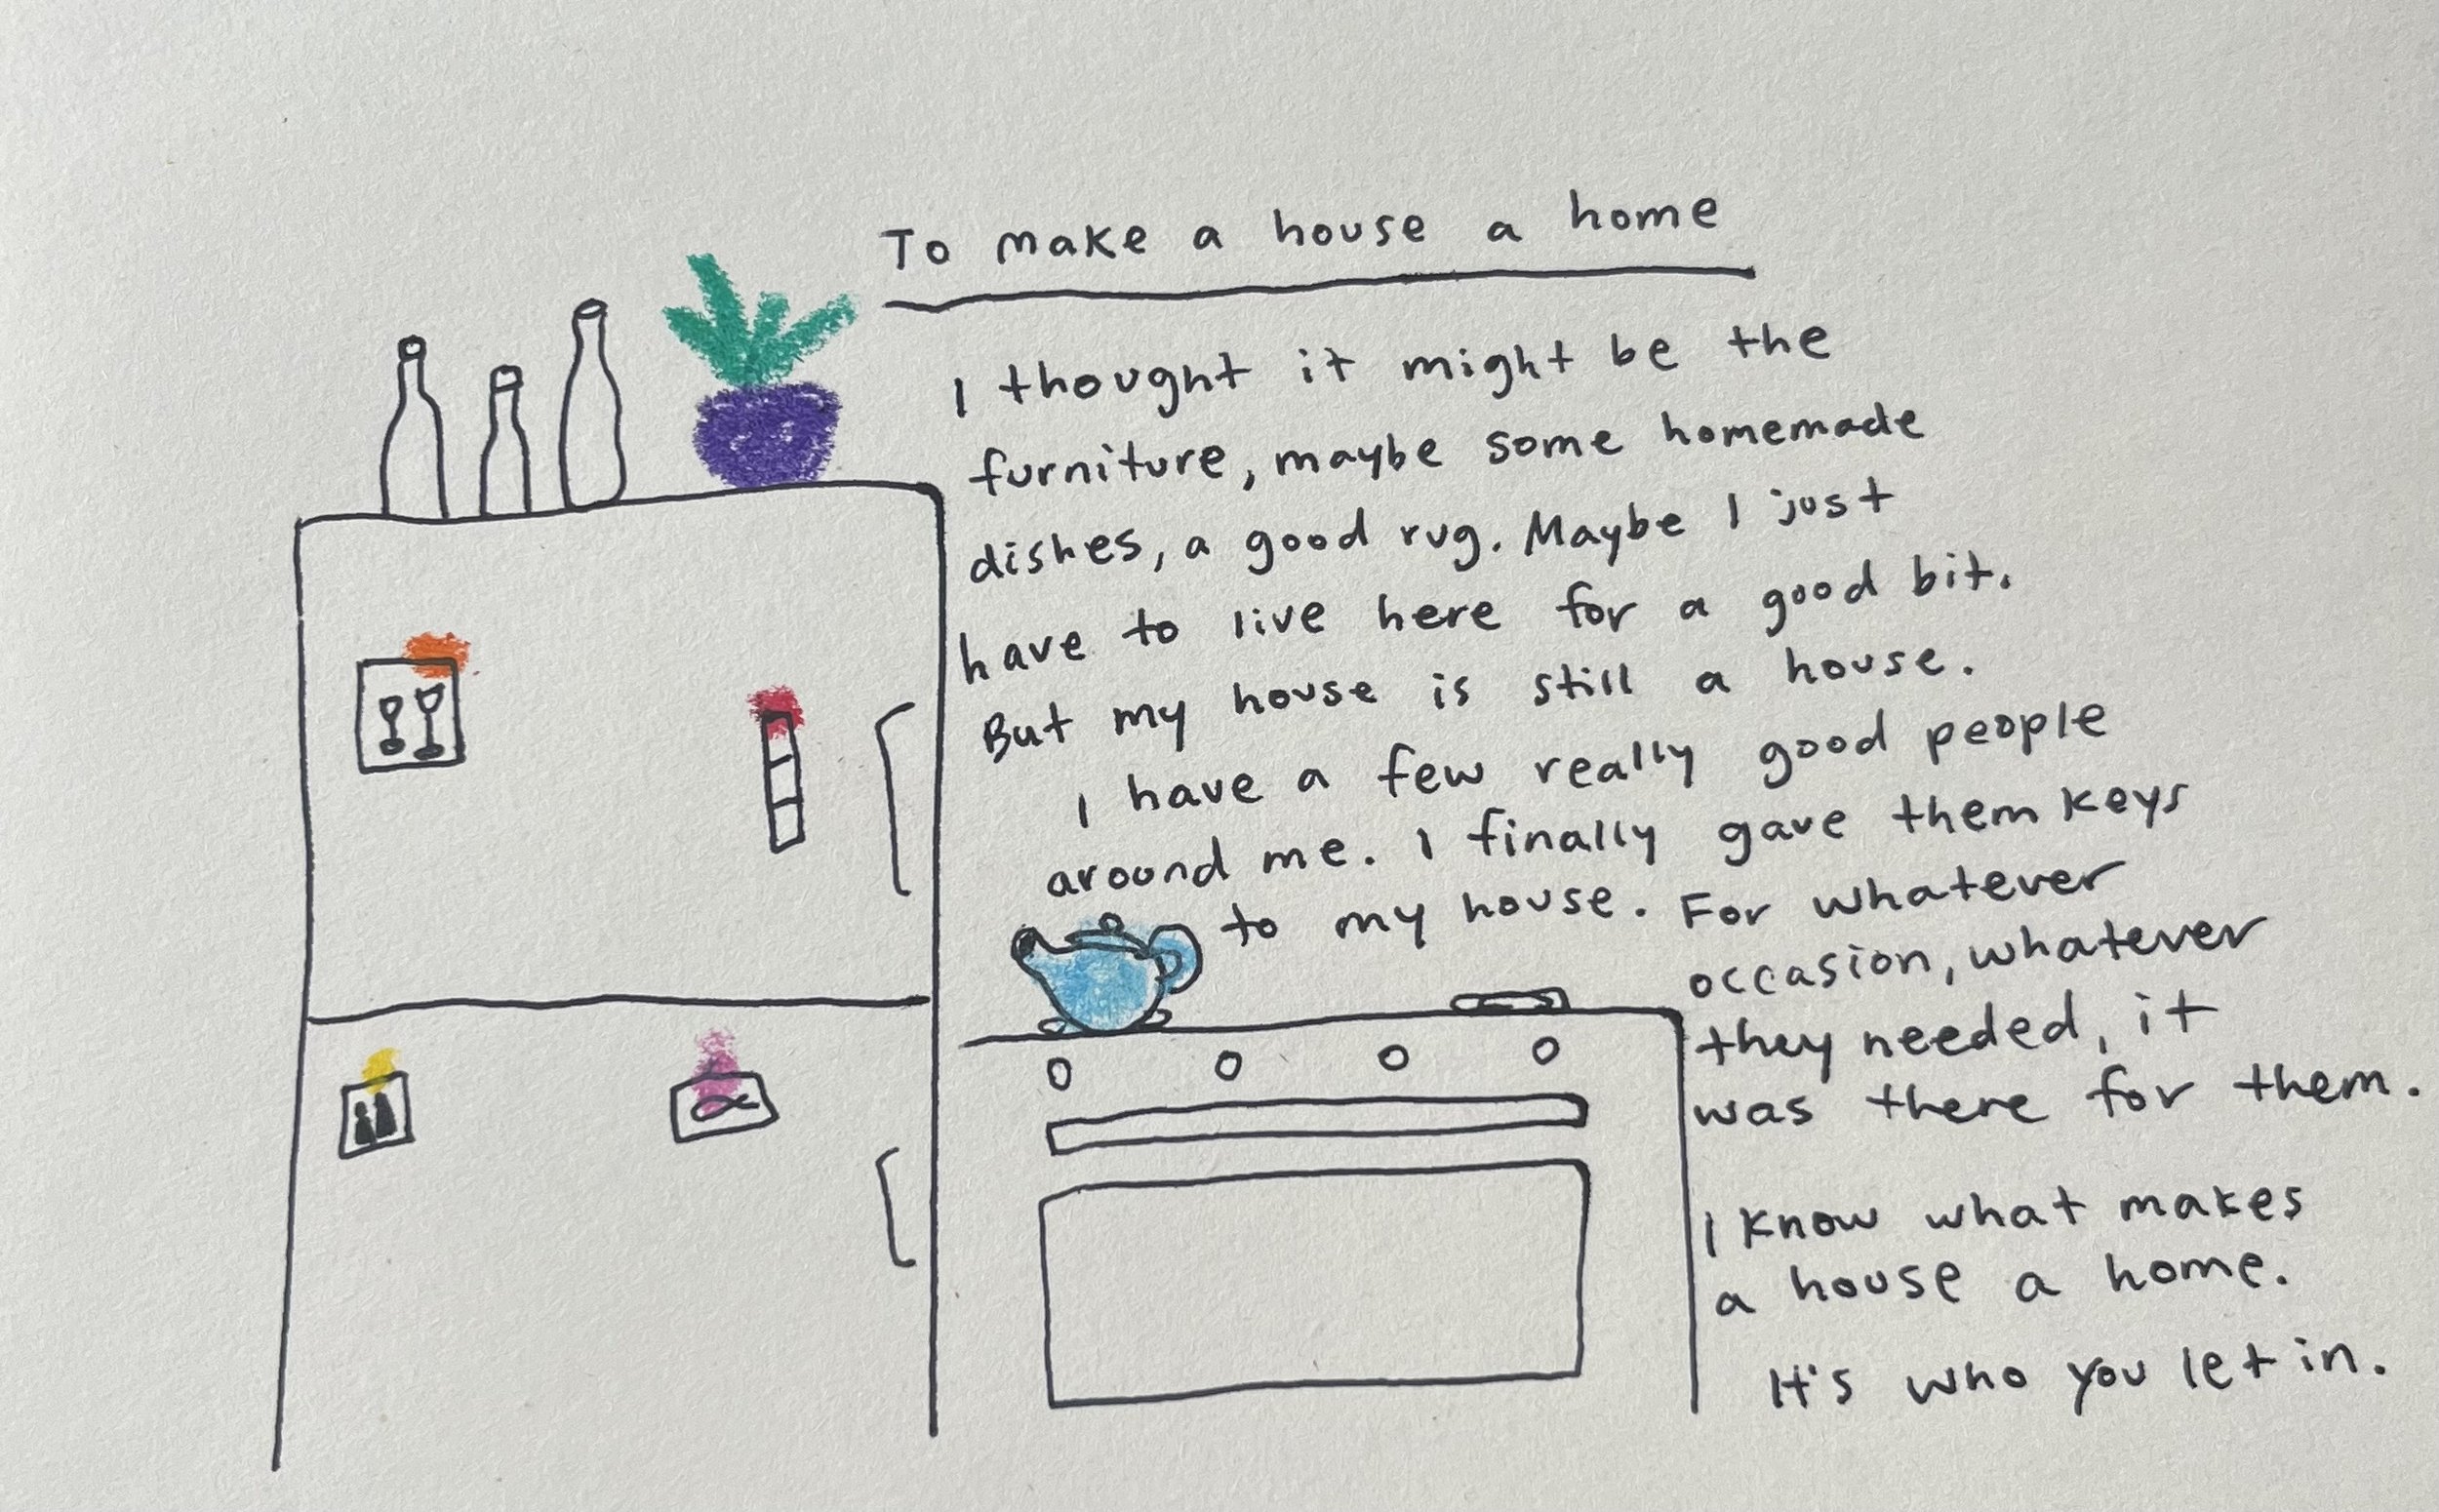 To make a house a home
I thought it might be the
furniture, maybe some homemade
dishes, a good rug. Maybe I just
have to live here for a good bit.
But my house is still a house.
I have a few really good people
around me. I finally gave them keys
to my house. For whatever
occasion, whatever
they needed, it
was there for them.
I know what makes
a house a home.
It's who you let in.